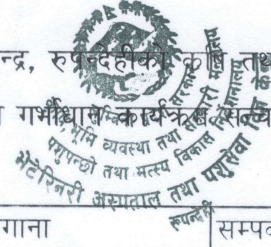 न्द्र, रुपन्देहीको कृषि तथ
गर्भाधान कार्यक्रम सञ्च
भूमि व्यवस्था तथा सहकारी
पशुपन्छी तथा मत्स्य विकास
भेटेरिनरी अस्पताल तथा पशुसेवा
रुपन्देही
गाना
सम्पर्